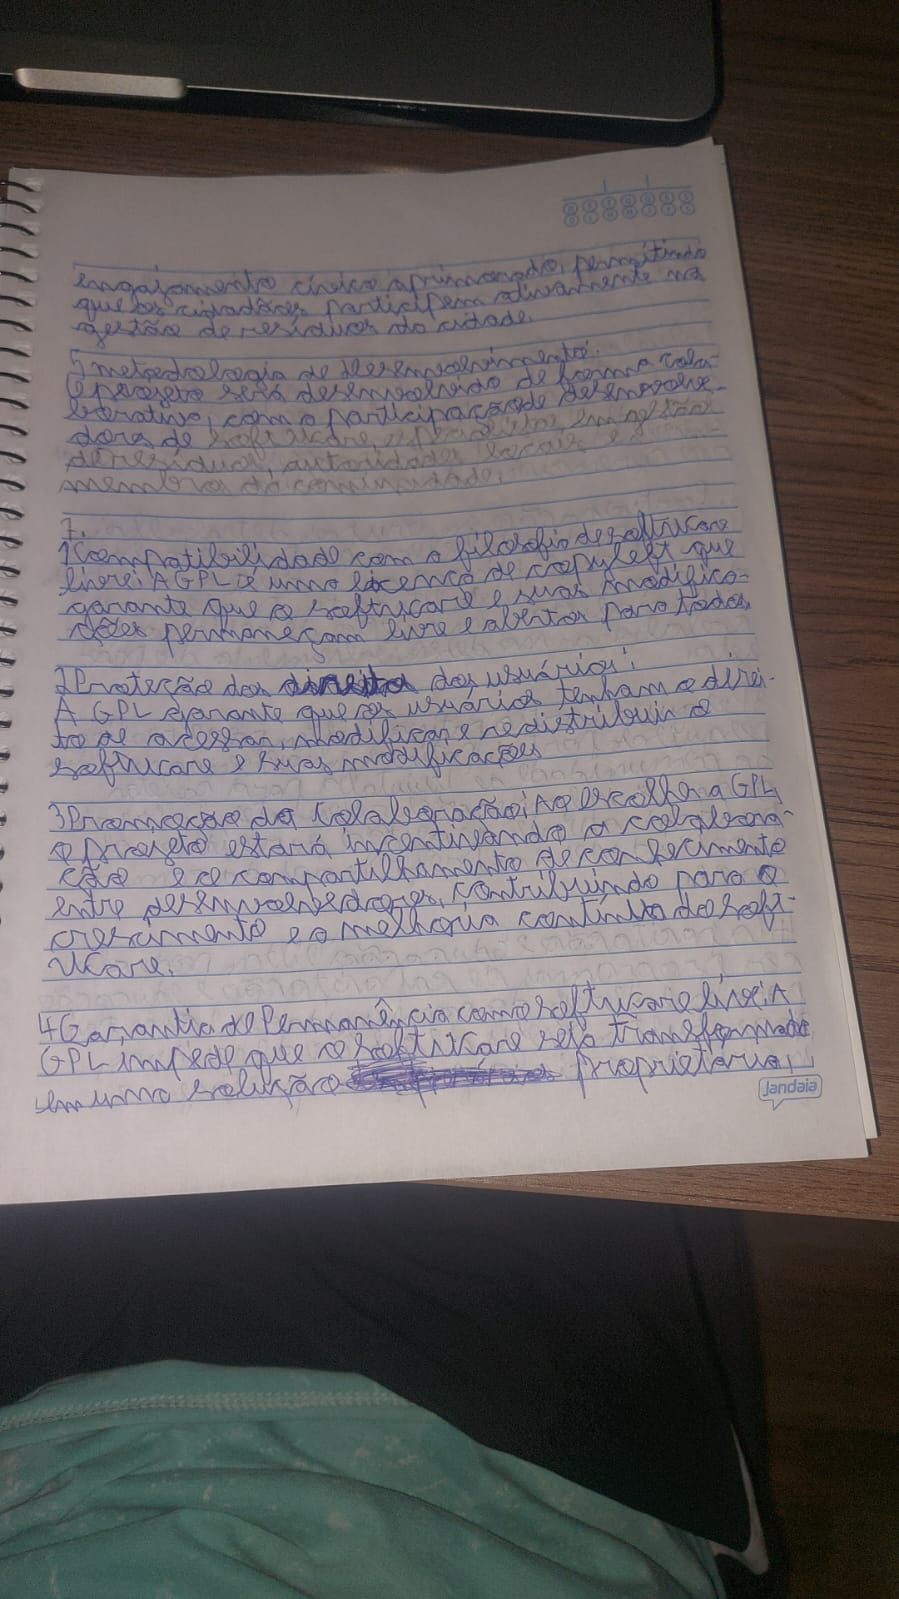 engajamento cívico aprimorado, permitindo
que os cidadões participem ativamente na
gestão de resíduos da cidade.
5 metodologia de desenvolvimento:
O projeto será desenvolvido de forma cola-
borativa, com a participação de desenvolve-
dores de software, especialistas em gestão
de resíduos, autoridades locais e
membros da comunidade.
7.
1 Compatibilidade com a filosofia de software
livre: A GPL é uma licença de copyleft que
garante que o software e suas modifica-
ções permaneçam livre e abertos para todos,
2 Proteção dos direitos dos usuários:
A GPL garante que os usuários tenham o direi-
to de acessar, modificar e redistribuir o
software e suas modificações
3 Promoção da Colaboração: Ao escolher a GPL,
o projeto estará incentivando a colabora-
ção e o compartilhamento de conhecimento
entre desenvolvedores, contribuindo para o
crescimento e a melhoria contínua do soft-
ware.
4 Garantia de Permanência como software livre: A
GPL impede que o software seja transformado
em uma solução proprietária,
Jandaia